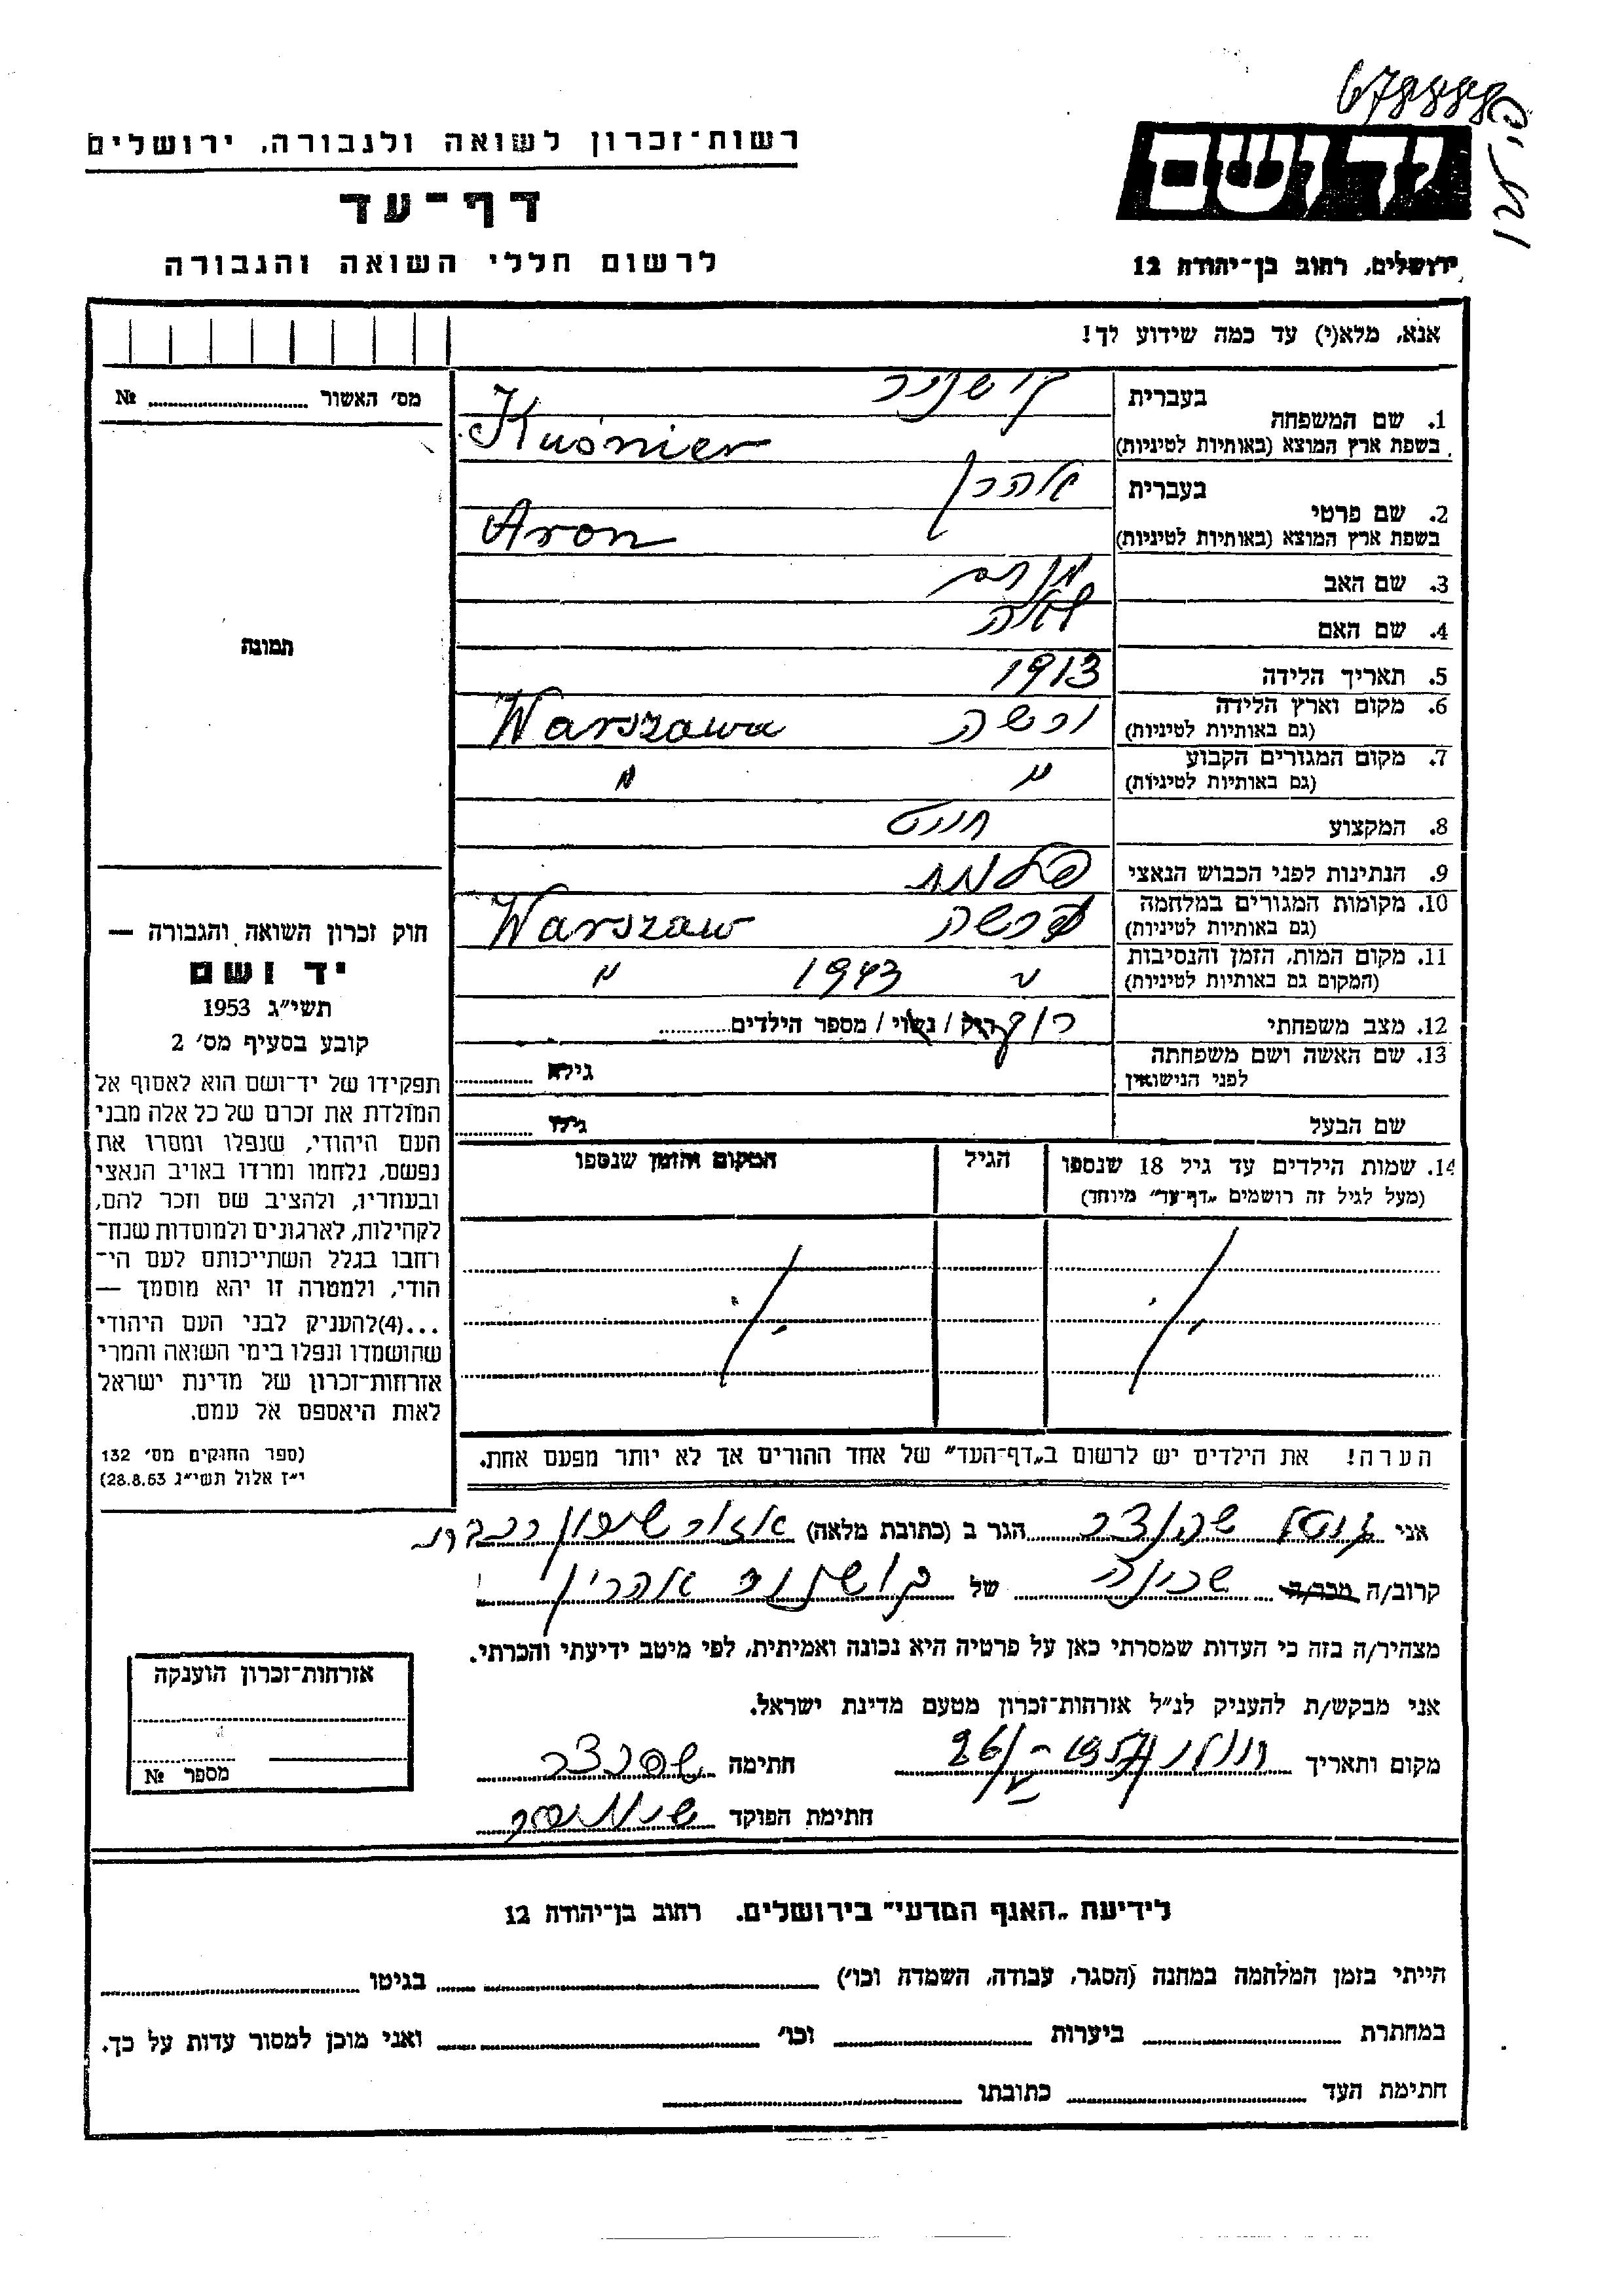 678888
רשות־זכרון לשואה ולגבורה, ירושלים
ידושם
דף־עד
לרשום חללי השואה והגבורה
ירושלים, רחוב בן־יהודה 12
אנא, מלא(י) עד כמה שידוע לך!
מס׳ האשור № ..........
1. שם המשפחה
בעברית קושניר
בשפת ארץ המוצא (באותיות לטיניות) Kuśnier
2. שם פרטי
בעברית אהרן
בשפת ארץ המוצא (באותיות לטיניות) Aron
3. שם האב
4. שם האם
5. תאריך הלידה 1913
6. מקום וארץ הלידה
(גם באותיות לטיניות) ורשה Warszawa
7. מקום המגורים הקבוע
(גם באותיות לטיניות) " "
8. המקצוע
9. הנתינות לפני הכבוש הנאצי
10. מקומות המגורים במלחמה
(גם באותיות לטיניות) ורשה Warszaw
11. מקום המות, הזמן והנסיבות
(המקום גם באותיות לטיניות) " 1943 "
12. מצב משפחתי רוק רווק / נשוי / מספר הילדים..........
13. שם האשה ושם משפחתה
לפני הנישואין גילא ..........
שם הבעל גילו ..........
14. שמות הילדים עד גיל 18 שנספו
(מעל לגיל זה רושמים "דף־עד" מיוחד)
הגיל
המקום והזמן שנספו
הערה! את הילדים יש לרשום ב"דף־העד" של אחד ההורים אך לא יותר מפעם אחת.
תמונה
חוק זכרון השואה והגבורה —
יד ושם
תשי״ג 1953
קובע בסעיף מס׳ 2
תפקידו של יד־ושם הוא לאסוף אל
המולדת את זכרם של כל אלה מבני
העם היהודי, שנפלו ומסרו את
נפשם, נלחמו ומרדו באויב הנאצי
ובעוזריו, ולהציב שם וזכר להם,
לקהילות, לארגונים ולמוסדות שנח־
רבו בגלל השתייכותם לעם הי־
הודי, ולמטרה זו יהא מוסמך —
...(4)להעניק לבני העם היהודי
שהושמדו ונפלו בימי השואה והמרי
אזרחות־זכרון של מדינת ישראל
לאות היאספם אל עמם.
(ספר החוקים מס׳ 132
י״ז אלול תשי״ג 28.8.53)
אני הגר ב (כתובת מלאה)
קרוב/ה מכר/ה שכינה של
מצהיר/ה בזה כי העדות שמסרתי כאן על פרטיה היא נכונה ואמיתית, לפי מיטב ידיעתי והכרתי.
אני מבקש/ת להעניק לנ״ל אזרחות־זכרון מטעם מדינת ישראל.
מקום ותאריך חתימה
חתימת הפוקד
אזרחות־זכרון הוענקה
מספר №
לידיעת "האגף המדעי" בירושלים. רחוב בן־יהודה 12
הייתי בזמן המלחמה במחנה (הסגר, עבודה, השמדה וכו׳) .......... בגיטו ..........
במחתרת .......... ביערות .......... וכו׳ .......... ואני מוכן למסור עדות על כך.
חתימת העד .......... כתובתו ..........